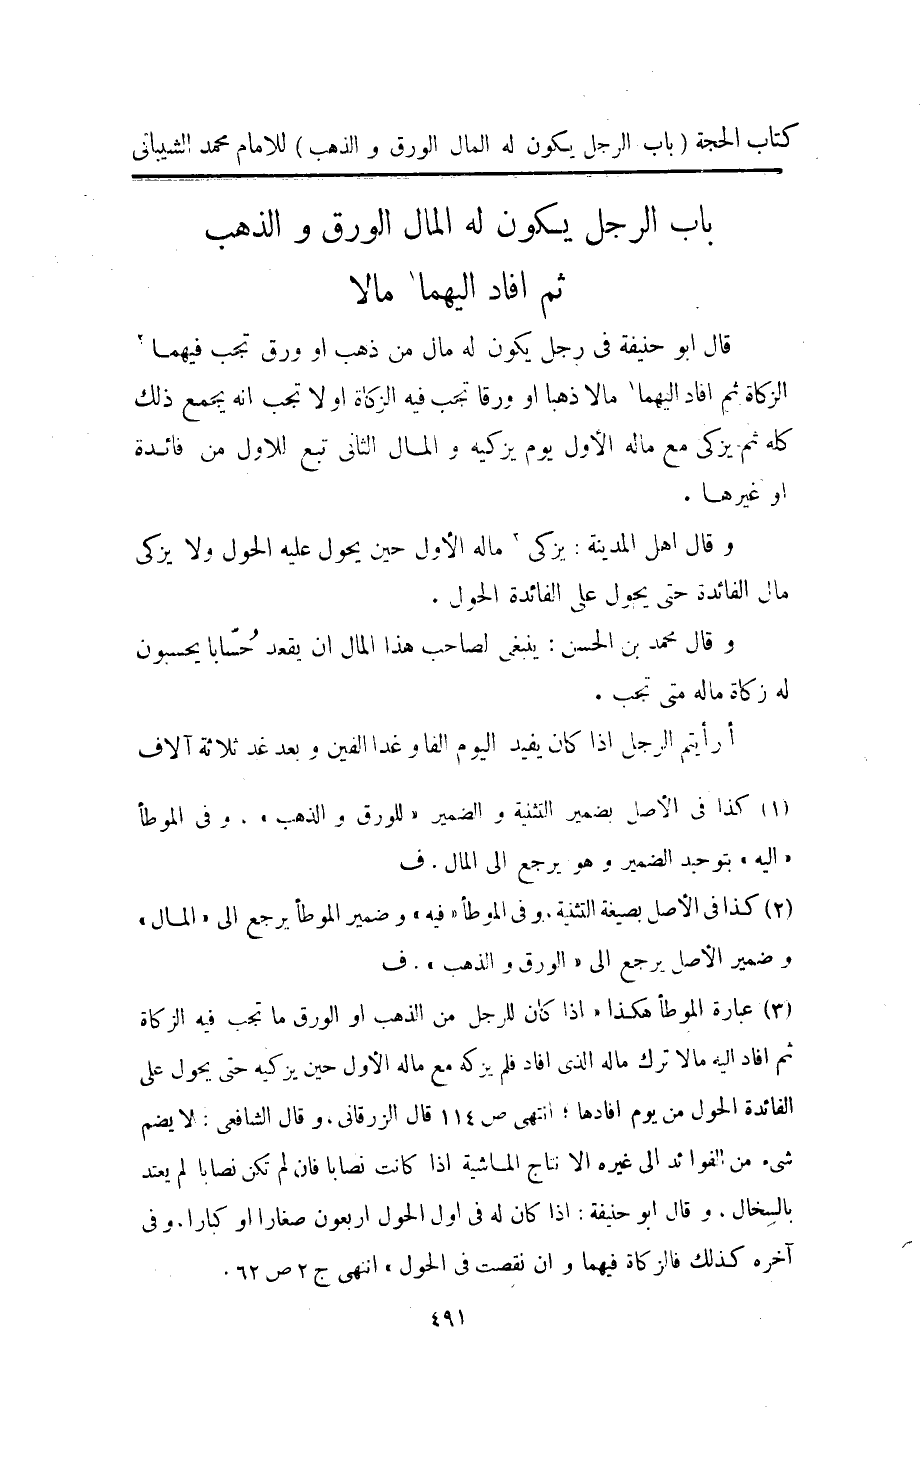 كتاب الحجة ( باب الرجل يكون له المال الورق و الذهب ) للامام محمد الشيبانى
باب الرجل يكون له المال الورق و الذهب
ثم افاد اليهما١ مالا
قال ابو حنيفة فى رجل يكون له مال من ذهب او ورق تجب فيهما٢
الزكاة ثم افاد اليهما١ مالا ذهبا او ورقا تجب فيه الزكاة او لا تجب انه يجمع ذلك
كله ثم يزكى مع ماله الأول يوم يزكيه و المال الثانى تبع للاول من فائدة
او غيرها .
و قال اهل المدينة : يزكى٣ ماله الأول حين يحول عليه الحول ولا يزكى
مال الفائدة حتى يحول على الفائدة الحول .
و قال محمد بن الحسن : ينبغى لصاحب هذا المال ان يقعد حُسّابا يحسبون
له زكاة ماله متى تجب .
أ رأيتم الرجل اذا كان يفيد اليوم الفا و غدا الفين و بعد غد ثلاثة آلاف
(١) كذا فى الأصل بضمير التثنية و الضمير « للورق و الذهب » . و فى الموطأ
« اليه » بتوحيد الضمير و هو يرجع الى المال . ف
(٢) كذا فى الأصل بصيغة التثنية ، و فى الموطأ « فيه » و ضمير الموطأ يرجع الى « المال »
و ضمير الأصل يرجع الى « الورق و الذهب » . ف
(٣) عبارة الموطأ هكذا « اذا كان للرجل من الذهب او الورق ما تجب فيه الزكاة
ثم افاد اليه مالا ترك ماله الذى افاد فلم يزكه مع ماله الأول حين يزكيه حتى يحول على
الفائدة الحول من يوم افادها ؛ انتهى ص ١١٤ قال الزرقانى ، و قال الشافعى : لا يضم
شىء من الفوائد الى غيره الا نتاج الماشية اذا كانت نصابا فان لم تكن نصابا لم يعتد
بالسخال . و قال ابو حنيفة : اذا كان له فى اول الحول اربعون صغارا او كبارا ، و فى
آخره كذلك فالزكاة فيهما و ان نقصت فى الحول » انتهى ج ٢ ص ٦٢ .
٤٩١